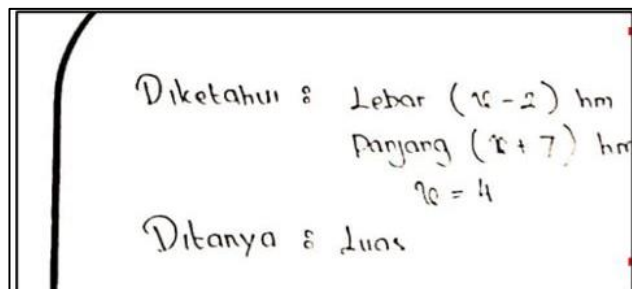 Diketahui : Lebar (x - 2) hm
Panjang (x + 7) hm
x = 4
Ditanya : Luas